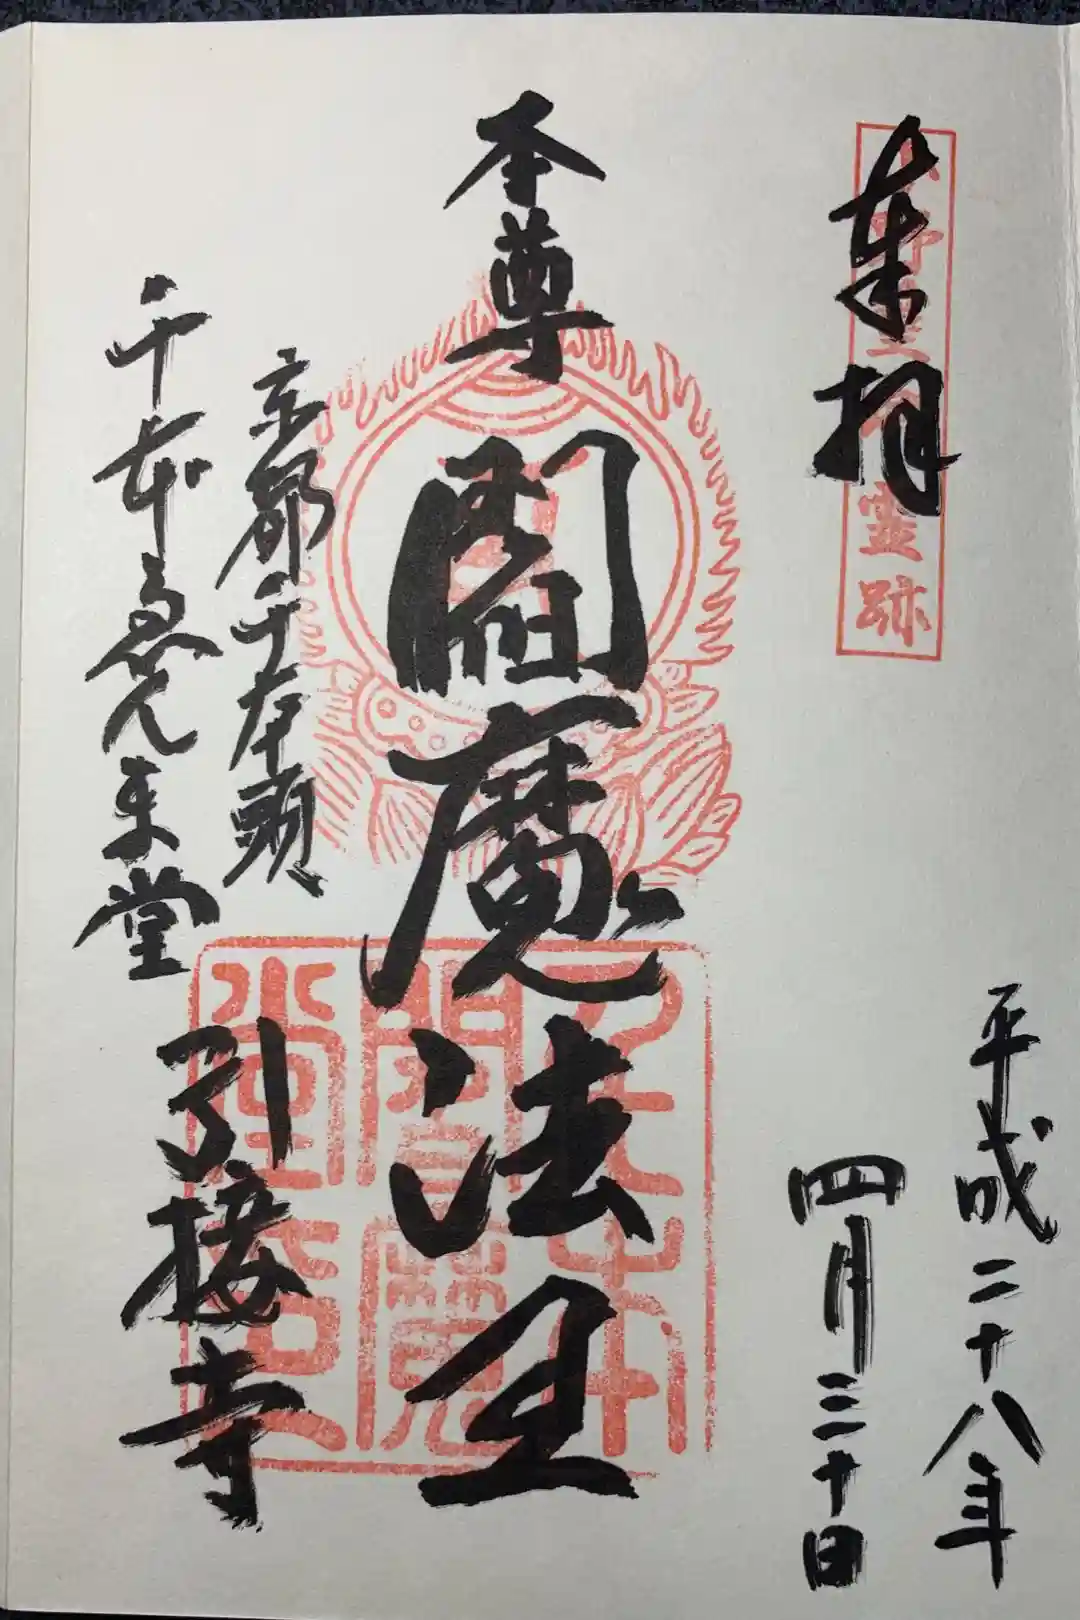 奉拝
野
霊跡
平成二十八年
四月三十日
本尊
閻魔法王
京都千本頭
千本ゑんま堂
引接寺